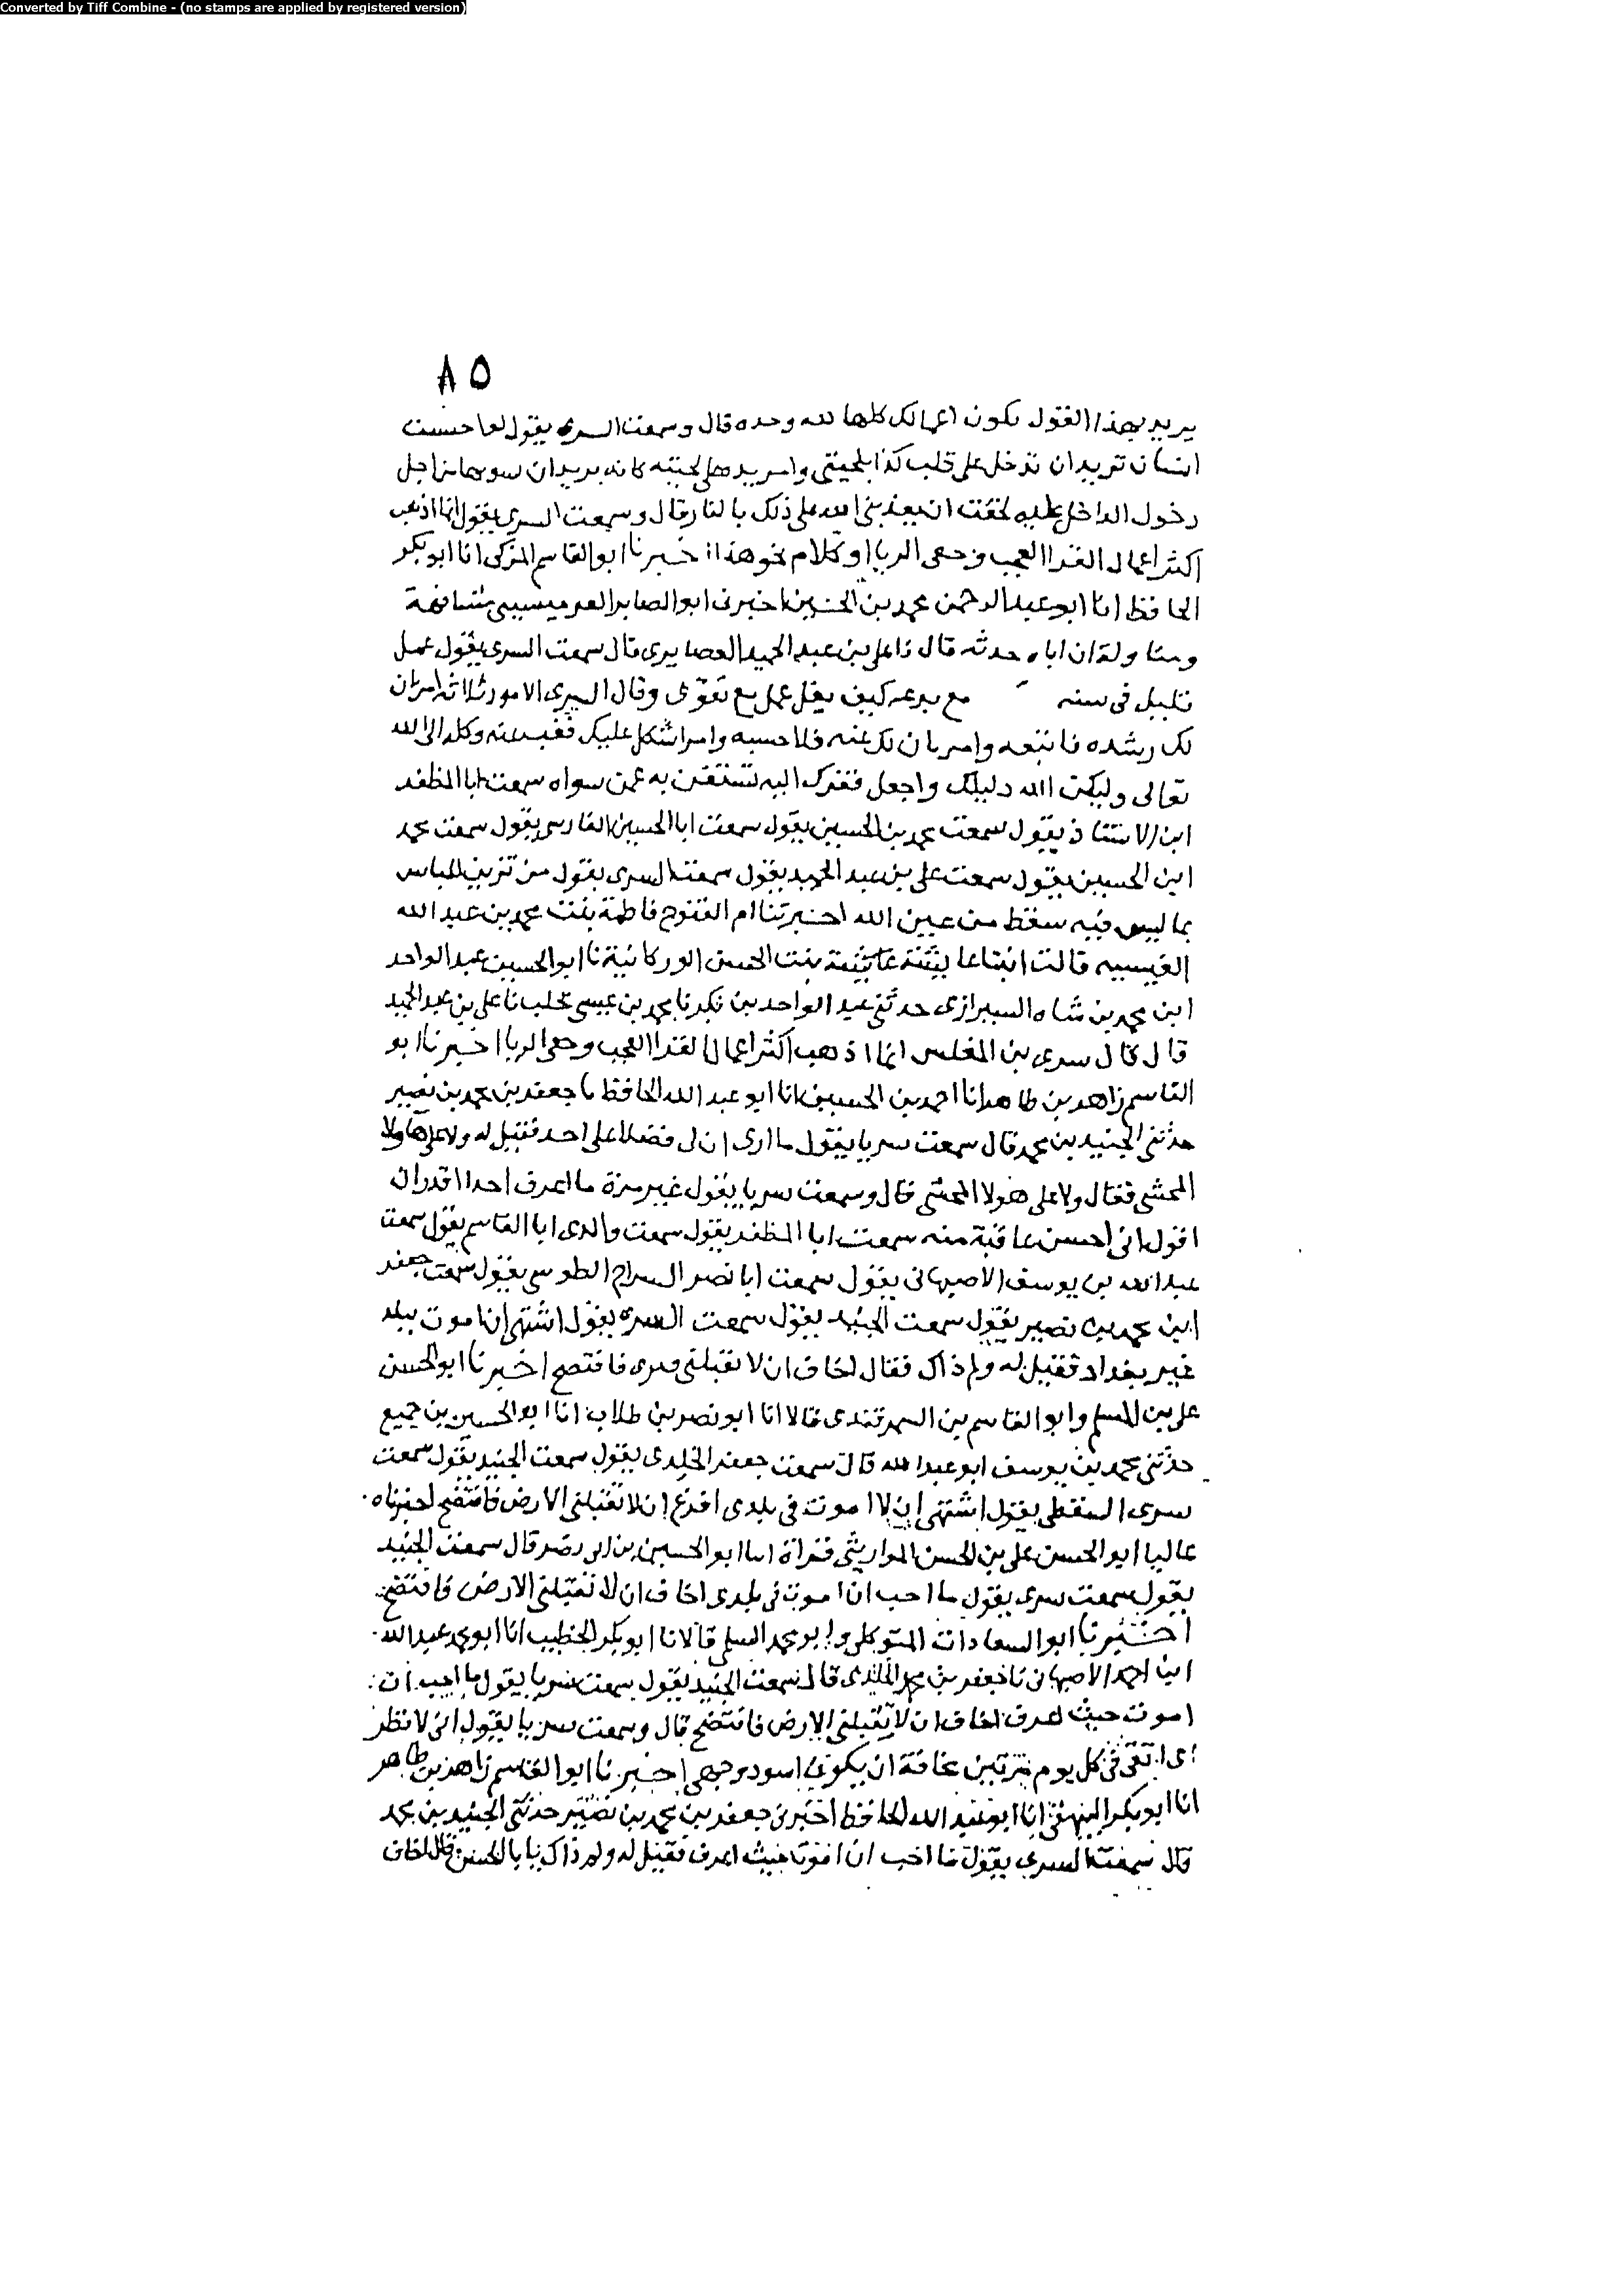 Converted by Tiff Combine - (no stamps are applied by registered version)
٨٥
يريد بهذا القول تكون اعمالك كلها لله وحده قال وسمعت السري يقول لو احسست
انسان تريد ان تدخل على قلب كذا بلحيتي وامر يده على لحيته كانه يريد ان سويها من اجل
دخول الداخل عليه لخفت ان يعذبني الله على ذلك بالنار قال وسمعت السري يقول انما اذهب
اكثر اعمال القرا العجب وخفي الريا او كلام نحو هذا اخبرنا ابو القاسم المزكي انا ابو بكر
الحافظ انا ابو عبد الرحمن محمد بن الحسين اخبرني ابو الصابر مشافهة
ومناولة ان اباه حدثه قال نا علي بن عبد الحميد الغضايري قال سمعت السري يقول عمل
قليل في سنه مع بدعه كيف يقل عمل مع تقوى وقال السري الامور ثلاثة امر بان
لك رشده فاتبعه وامر بان لك غيه فلا حسبه وامر اشكل عليك فقف عنه وكله الى الله
تعالى وليكن الله دليلك واجعل فقرك اليه تستغن به عمن سواه سمعت ابا المظفر
ابن الاستاذ يقول سمعت محمد بن الحسين يقول سمعت ابا الحسين الفارسي يقول سمعت محمد
ابن الحسين يقول سمعت علي بن عبد الحميد يقول سمعت السري يقول من تزين للناس
بما ليس فيه سقط من عين الله اخبرتنا ام الفتوح فاطمة بنت محمد بن عبد الله
القيسيه قالت انبتنا عايشة بنت الحسن الوركانية نا ابو الحسين عبد الواحد
ابن محمد بن شاه السيرازي حدثني عبد الواحد بن بكر نا محمد بن عيسى بحلب نا علي بن عبد الحميد
قال قال سري بن المغلس انما اذهب اكثر اعمال القرا العجب وخفي الريا اخبرنا ابو
القاسم زاهد بن طاهر انا احمد بن الحسين انا ابو عبد الله الحافظ نا جعفر بن محمد بن نصير
حدثني الجنيد بن محمد قال سمعت سريا يقول ما ارى ان لي فضلا على احد فقيل له ولا على هاولا
المخنثي فقال ولا على هولا المخنثي قال وسمعت سريا يقول غير مرة ما اعرف احدا اقدر ان
اقول اني احسن عاقبة منه سمعت ابا المظفر يقول سمعت والدي ابا القاسم يقول سمعت
عبد الله بن يوسف الاصبهاني يقول سمعت ابا نصر السراج الطوسي يقول سمعت جعفر
ابن محمد بن نصير يقول سمعت الجنيد يقول سمعت السري يقول اشتهي ان اموت ببلد
غير بغداد فقيل له ولم ذاك فقال اخاف ان لا تقبلني قبري فافتضح اخبرنا ابو الحسن
علي بن المسلم وابو القاسم بن السمرقندي قالا انا ابو نصر بن طلاب انا ابو الحسين بن جميع
حدثني محمد بن يوسف ابو عبد الله قال سمعت جعفر الخلدي يقول سمعت الجنيد يقول سمعت
سري السقطي يقول اشتهي ان لا اموت في بلدي افزع ان لا تقبلني الارض فافتضح اخبرناه
عاليا ابو الحسن علي بن الحسن الموازيني قراة انا ابو الحسين بن ابي نصر قال سمعت الجنيد
يقول سمعت سري يقول ما احب ان اموت في بلدي اخاف ان لا تقبلني الارض فافتضح
اخبرنا ابو السعادات المتوكلي وابو محمد السلمي قالا نا ابو بكر الخطيب انا ابو محمد عبد الله
ابن احمد الاصبهاني نا جعفر بن محمد الخلدي قال سمعت الجنيد يقول سمعت سريا يقول ما احب ان
اموت حيث اعرف اخاف ان لا تقبلني الارض فافتضح قال وسمعت سريا يقول اني لانظر
الى انفي في كل يوم مرتين مخافة ان يكون اسود وجهي اخبرنا ابو القاسم زاهد بن طاهر
انا ابو بكر البيهقي انا ابو عبد الله الحافظ اخبرني جعفر بن محمد بن نصير حدثني الجنيد بن محمد
قال سمعت السري يقول ما احب ان اموت حيث اعرف فقيل له ولم ذاك يا ابا الحسن قال اخاف